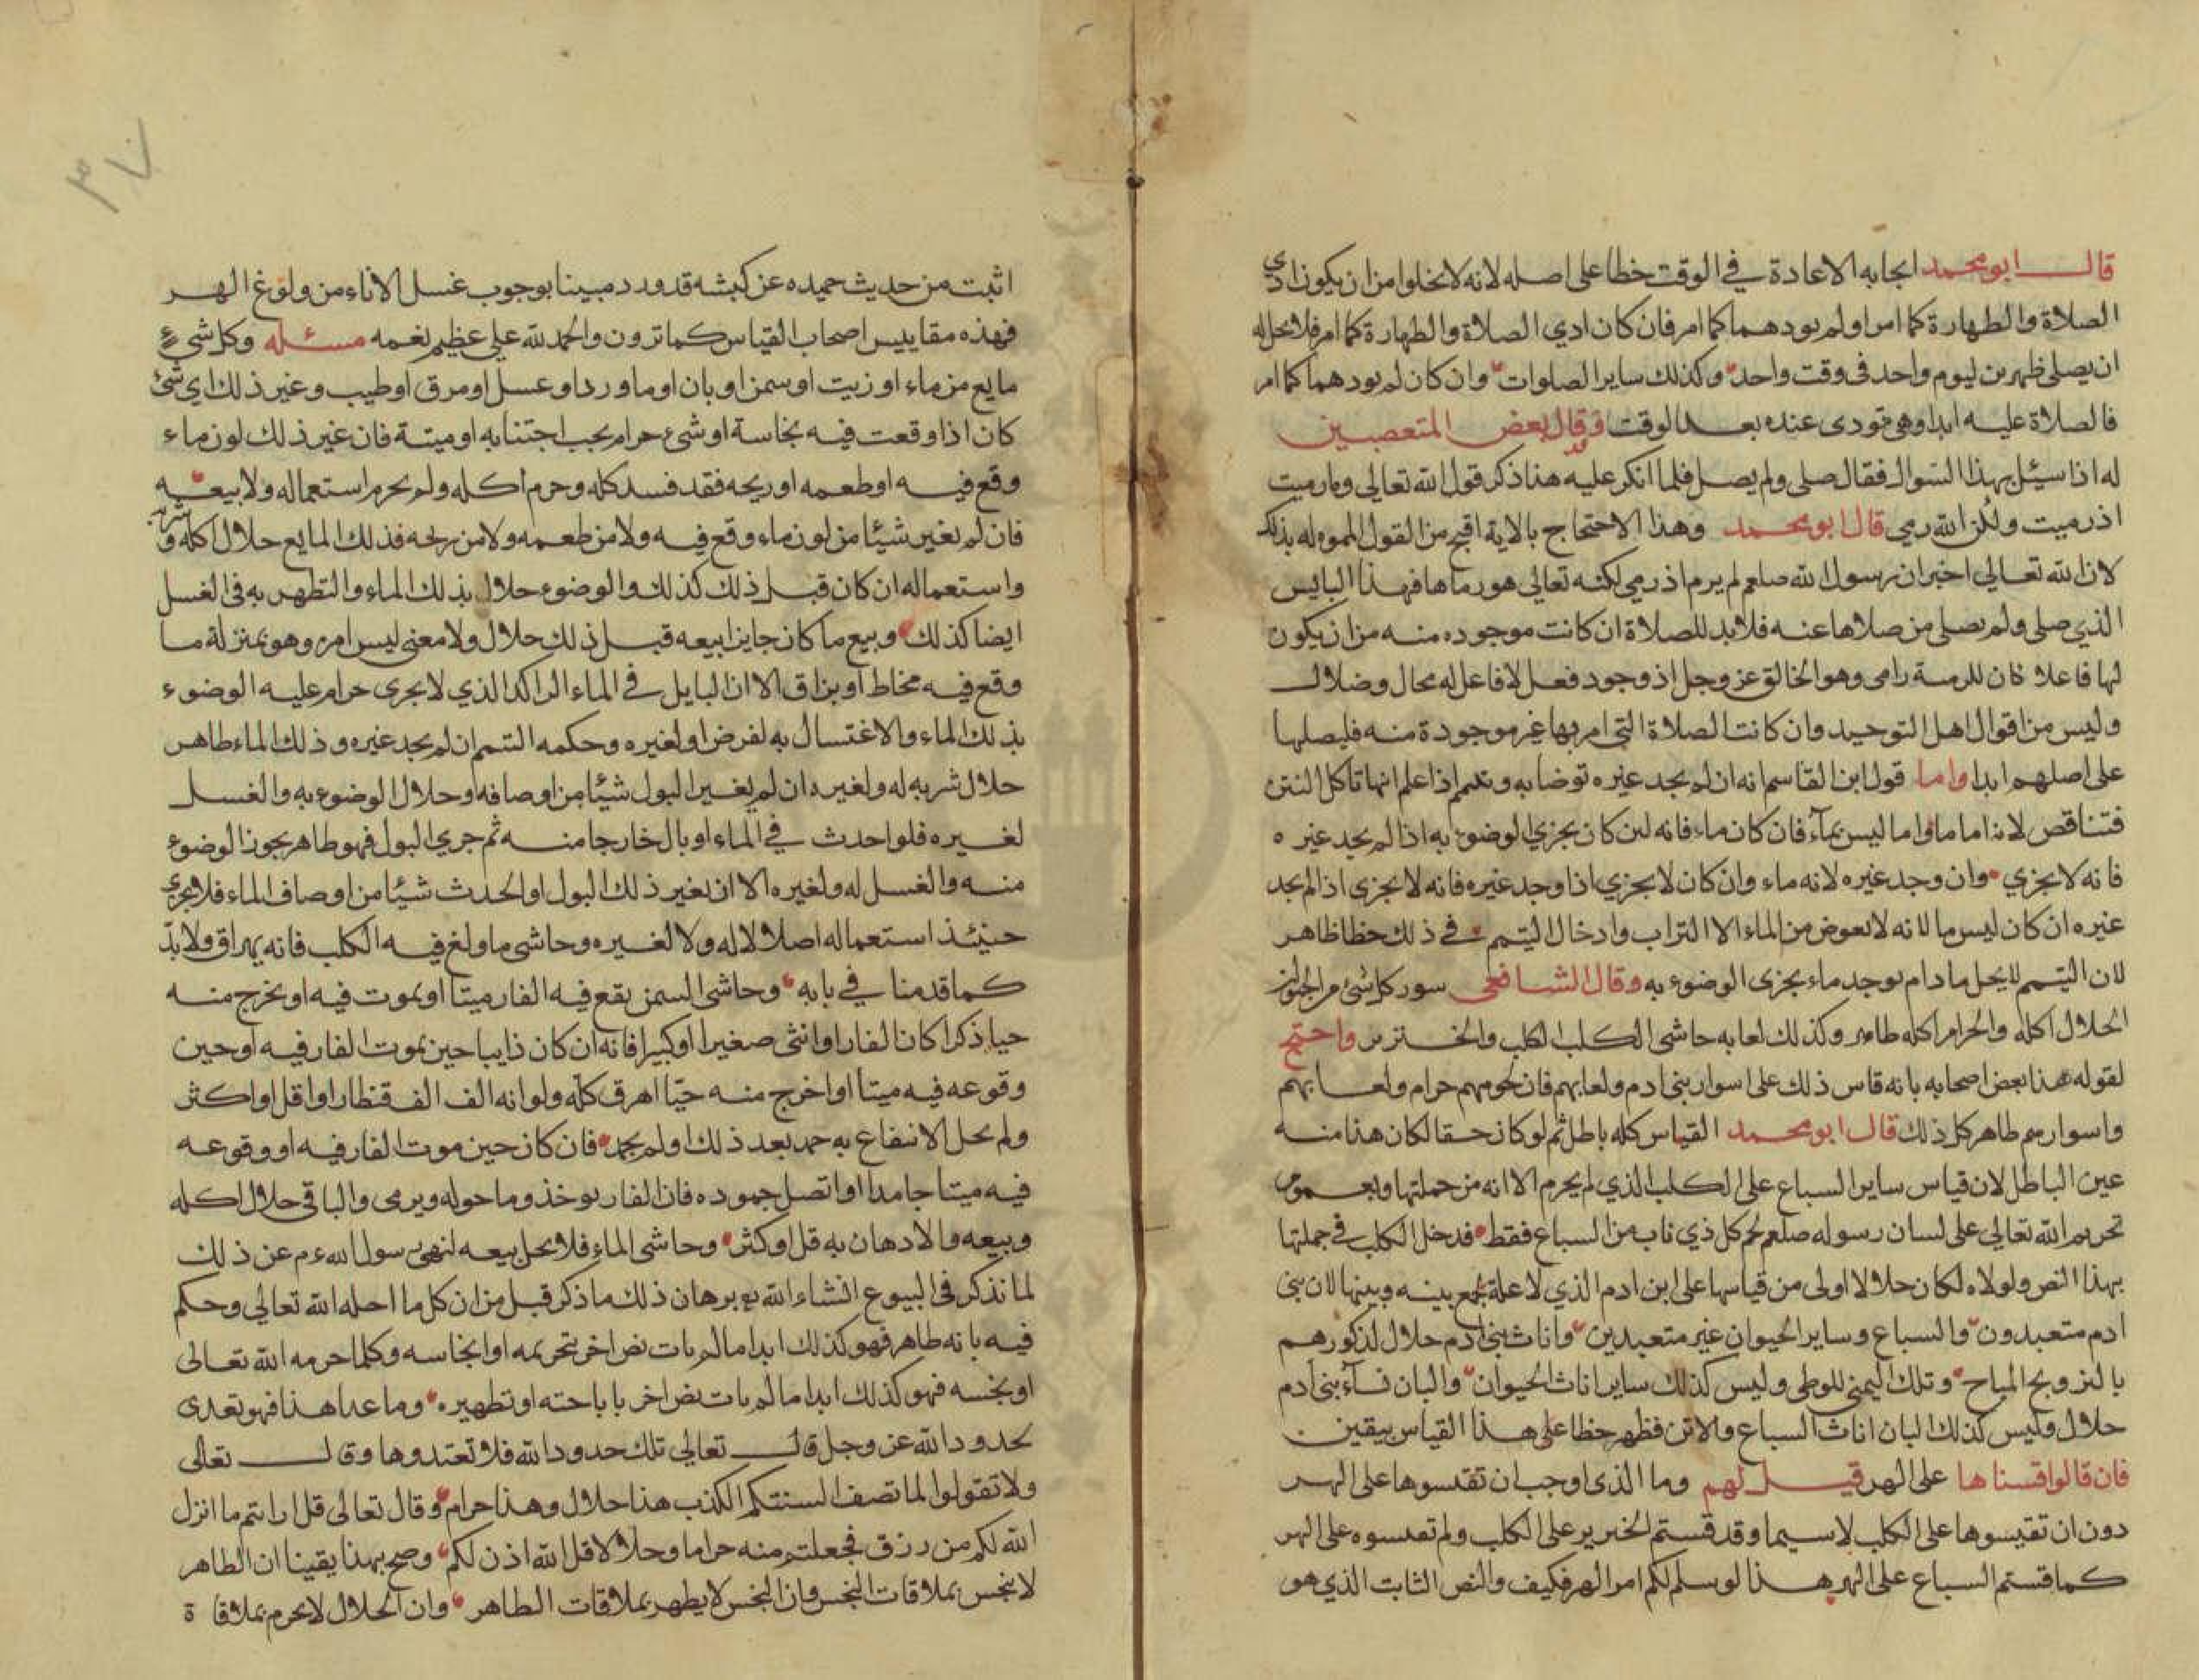 قال ابو محمد ايجابه الاعادة في الوقت خطا على اصله لانه لا يخلوا من ان يكون ادي
الصلاة والطهارة كما امر او لم يودهما كما امر فان كان ادي الصلاة والطهارة كما امر فلا يحل له
ان يصلى ظهرين ليوم واحد فى وقت واحد وكذلك ساير الصلوات وان كان لم يودهما كما امر
فالصلاة عليه ابدا وهى تودى عنده بعد الوقت وقال بعض المتعصبين
له اذا سيئل بهذا السوال فقال صلى ولم يصل فلما انكر عليه هذا ذكر قول الله تعالى وما رميت
اذ رميت ولكن الله رمي قال ابو محمد وهذا الاحتجاج بالاية اقبح من القول المموه له بذلك
لان الله تعالي اخبر ان رسول الله صلعم لم يرم اذ رمي لكنه تعالى هو رماها فهذا البايس
الذي صلى ولم يصلى من صلاها عنه فلا بد للصلاة ان كانت موجوده منه من ان يكون
لها فاعلا كان للرمية رامى وهو الخالق عز وجل اذ وجود فعل لا فاعل له محال وضلال
وليس من اقوال اهل التوحيد وان كانت الصلاة التى امر بها غير موجودة منه فليصلها
على اصلهم ابدا واما قول ابن القاسم انه ان لم يجد غيره توضا به وتيمم اذا علم انها تاكل النتن
فتناقص لانه اما ما واما ليس بماء فان كان ماء فانه لين كان يجزي الوضوء به اذا لم يجد غيره
فانه لا يجزي وان وجد غيره لانه ماء وان كان لا يجزي اذا وجد غيره فانه لا يجزى اذ الم يجد
غيره ان كان ليس ما لانه لا يعوض من الماء الا التراب وادخال التيمم في ذلك خطا ظاهر
لان التيمم لا يحل ما دام يوجد ماء يجزى الوضوء به وقال الشافعى سور كل شى من الحيوان
الحلال اكله والحرام اكله طاهر وكذلك لعابه حاشى الكلب الكلب والخنزير واحتج
لقوله هذا بعض اصحابه بانه قاس ذلك على اسوار بنى ادم ولعابهم فان لحومهم حرام ولعابهم
واسوارهم طاهر كل ذلك قال ابو محمد القياس كله باطل ثم لو كان حقا لكان هذا منه
عين الباطل لان قياس ساير السباع على الكلب الذي لم يحرم الا انه من جملتها وبعموم
تحريم الله تعالى على لسان رسوله صلعم لحم كل ذي ناب من السباع فقط فدخل الكلب في جملتها
بهذا النص ولولاه لكان حلالا اولى من قياسها على ابن ادم الذي لا علة تجمع بينه وبينها لان بنى
ادم متعبدون والسباع وساير الحيوان غير متعبدين واناث بنى ادم حلال لذكورهم
بالتزويج المباح وتلك اليمنى للوطى وليس كذلك ساير اناث الحيوان والبان نساء بنى ادم
حلال وليس كذلك البان اناث السباع والاتن فظهر خطا على هذا القياس بيقين
فان قالوا قسناها على الهر قيل لهم وما الذى اوجب ان تقيسوها على الهر
دون ان تقيسوها على الكلب لا سيما وقد قستم الخنزير على الكلب ولم تقيسوه على الهر
كما قستم السباع على الهر هذا لو سلم لكم امر الهر فكيف والنص الثابت الذي هو
اثبت من حديث حميده عن كبشه قد ورد مبينا بوجوب غسل الاناء من ولوغ الهر
فهذه مقاييس اصحاب القياس كما ترون والحمد لله على عظيم نعمه مسئلة وكل شيء
مايع من ماء او زيت او سمن او بان او ما ورد او عسل او مرق او طيب وغير ذلك اي شئ
كان اذا وقعت فيه نجاسة او شيء حرام يجب اجتنابه او ميتة فان غير ذلك لون ماء
وقع فيه او طعمه او ريحه فقد فسد كله وحرم اكله ولم يحرم استعماله ولا بيعه
فان لم يغير شيئا من لون ماء وقع فيه ولا من طعمه ولا من ريحه فذلك المايع حلال اكله وشربه
واستعماله ان كان قبل ذلك كذلك والوضوء حلال بذلك الماء والتطهر به فى الغسل
ايضا كذلك وبيع ما كان جايزا بيعه قبل ذلك حلال ولا معنى ليس امره وهو بمنزلة ما
وقع فيه مخاط او بزاق الا ان البايل في الماء الراكد الذي لا يجرى حرام عليه الوضوء
بذلك الماء والاغتسال به لفرض او لغيره وحكمه التيمم ان لم يجد غيره وذلك الماء طاهر
حلال شربه له ولغيره ان لم يغير البول شيئا من اوصافه وحلال الوضوء به والغسل
لغيره فلو احدث في الماء او بال خارجا منه ثم جري البول فهو طاهر يجوز الوضوء
منه والغسل له ولغيره الا ان يغير ذلك البول او الحدث شيئا من اوصاف الماء فلا يجزي
حينئذ استعماله اصلا لا له ولا لغيره وحاشى ما ولغ فيه الكلب فانه يهراق ولا بد
كما قدمنا في بابه وحاشى السمن يقع فيه الفار ميتا او يموت فيه او يخرج منه
حيا ذكرا كان الفار او انثى صغيرا او كبيرا فانه ان كان ذايبا حين يموت الفار فيه او حين
وقوعه فيه ميتا او اخرج منه حيا اهرق كله ولو انه الف الف قنطار او اقل او اكثر
ولم يحل الانتفاع به جمد بعد ذلك او لم يجمد فان كان حين موت الفار فيه او وقوعه
فيه ميتا جامدا او اتصل جموده فان الفار يوخذ وما حوله ويرمى والباقى حلال اكله
وبيعه والادهان به قل او كثر وحاشى الماء فلا يحل بيعه لنهى رسول الله عم عن ذلك
لما نذكر فى البيوع انشاء الله تع برهان ذلك ما ذكر قبل من ان كل ما احله الله تعالى وحكم
فيه بانه طاهر فهو كذلك ابدا ما لم يات نص اخر بتحريمه او انجاسه وكلما حرمه الله تعالى
او نجسه فهو كذلك ابدا ما لم يات نص اخر باباحته او تطهيره وما عدا هذا فهو تعدى
لحدود الله عز وجل قال تعالي تلك حدود الله فلا تعتدوها وقال تعالى
ولا تقولوا لما تصف السنتكم الكذب هذا حلال وهذا حرام وقال تعالى قل ارايتم ما انزل
الله لكم من رزق فجعلتم منه حراما وحلالا قل الله اذن لكم وصح بهذا يقينا ان الطاهر
لا ينجس بملاقات النجس وان النجس لا يطهر بملاقات الطاهر وان الحلال لا يحرم بملاقاة
٣٧